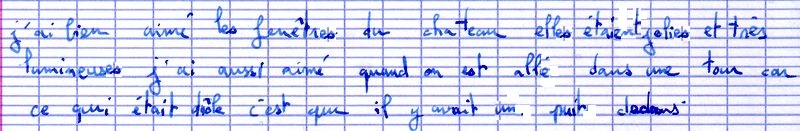 j'ai bien aimé les fenêtres du chateau elles étaient jolies et très
lumineuses j'ai aussi aimé quand on est allé dans une tour car
ce qui était drôle c'est que il y avait un puit dedans